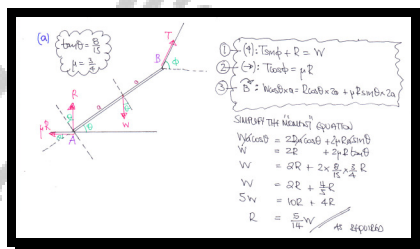 (a)
tanθ = 8/15
μ = 3/4
T
B
ϕ
a
a
R
W
θ
μR
A
① (↑): Tsinϕ + R = W
② (→): Tcosϕ = μR
③ B: Wcosθ×a = Rcosθ×2a + μRsinθ×2a
SIMPLIFY THE "MOMENT" EQUATION
Wacosθ = 2Racosθ + 2μRasinθ
W = 2R + 2μRtanθ
W = 2R + 2×8/15×3/4R
W = 2R + 4/5R
5W = 10R + 4R
R = 5/14W
AS REQUIRED